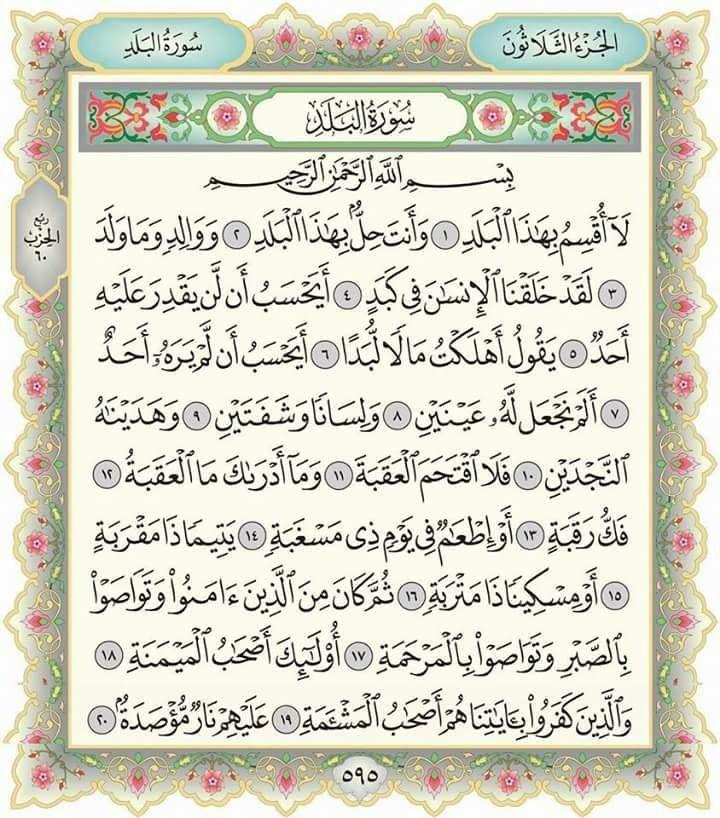 الجُزْءُ الثَّلَاثُونَ
سُورَةُ البَلَدِ
سُورَةُ البَلَدِ
بِسْمِ اللَّهِ الرَّحْمَٰنِ الرَّحِيمِ
لَا أُقْسِمُ بِهَٰذَا الْبَلَدِ ١ وَأَنتَ حِلٌّ بِهَٰذَا الْبَلَدِ ٢ وَوَالِدٍ وَمَا وَلَدَ
٣ لَقَدْ خَلَقْنَا الْإِنسَٰنَ فِي كَبَدٍ ٤ أَيَحْسَبُ أَن لَّن يَقْدِرَ عَلَيْهِ
أَحَدٌ ٥ يَقُولُ أَهْلَكْتُ مَالًا لُّبَدًا ٦ أَيَحْسَبُ أَن لَّمْ يَرَهُۥ أَحَدٌ
٧ أَلَمْ نَجْعَل لَّهُۥ عَيْنَيْنِ ٨ وَلِسَانًا وَشَفَتَيْنِ ٩ وَهَدَيْنَٰهُ
النَّجْدَيْنِ ١٠ فَلَا اقْتَحَمَ الْعَقَبَةَ ١١ وَمَآ أَدْرَىٰكَ مَا الْعَقَبَةُ ١٢
فَكُّ رَقَبَةٍ ١٣ أَوْ إِطْعَٰمٌ فِي يَوْمٍ ذِي مَسْغَبَةٍ ١٤ يَتِيمًا ذَا مَقْرَبَةٍ
١٥ أَوْ مِسْكِينًا ذَا مَتْرَبَةٍ ١٦ ثُمَّ كَانَ مِنَ الَّذِينَ ءَامَنُوا۟ وَتَوَاصَوْا۟
بِالصَّبْرِ وَتَوَاصَوْا۟ بِالْمَرْحَمَةِ ١٧ أُو۟لَٰٓئِكَ أَصْحَٰبُ الْمَيْمَنَةِ ١٨
وَالَّذِينَ كَفَرُوا۟ بِـَٔايَٰتِنَا هُمْ أَصْحَٰبُ الْمَشْـَٔمَةِ ١٩ عَلَيْهِمْ نَارٌ مُّؤْصَدَةٌۢ ٢٠
ربع
الحزب
٦٠
٥٩٥